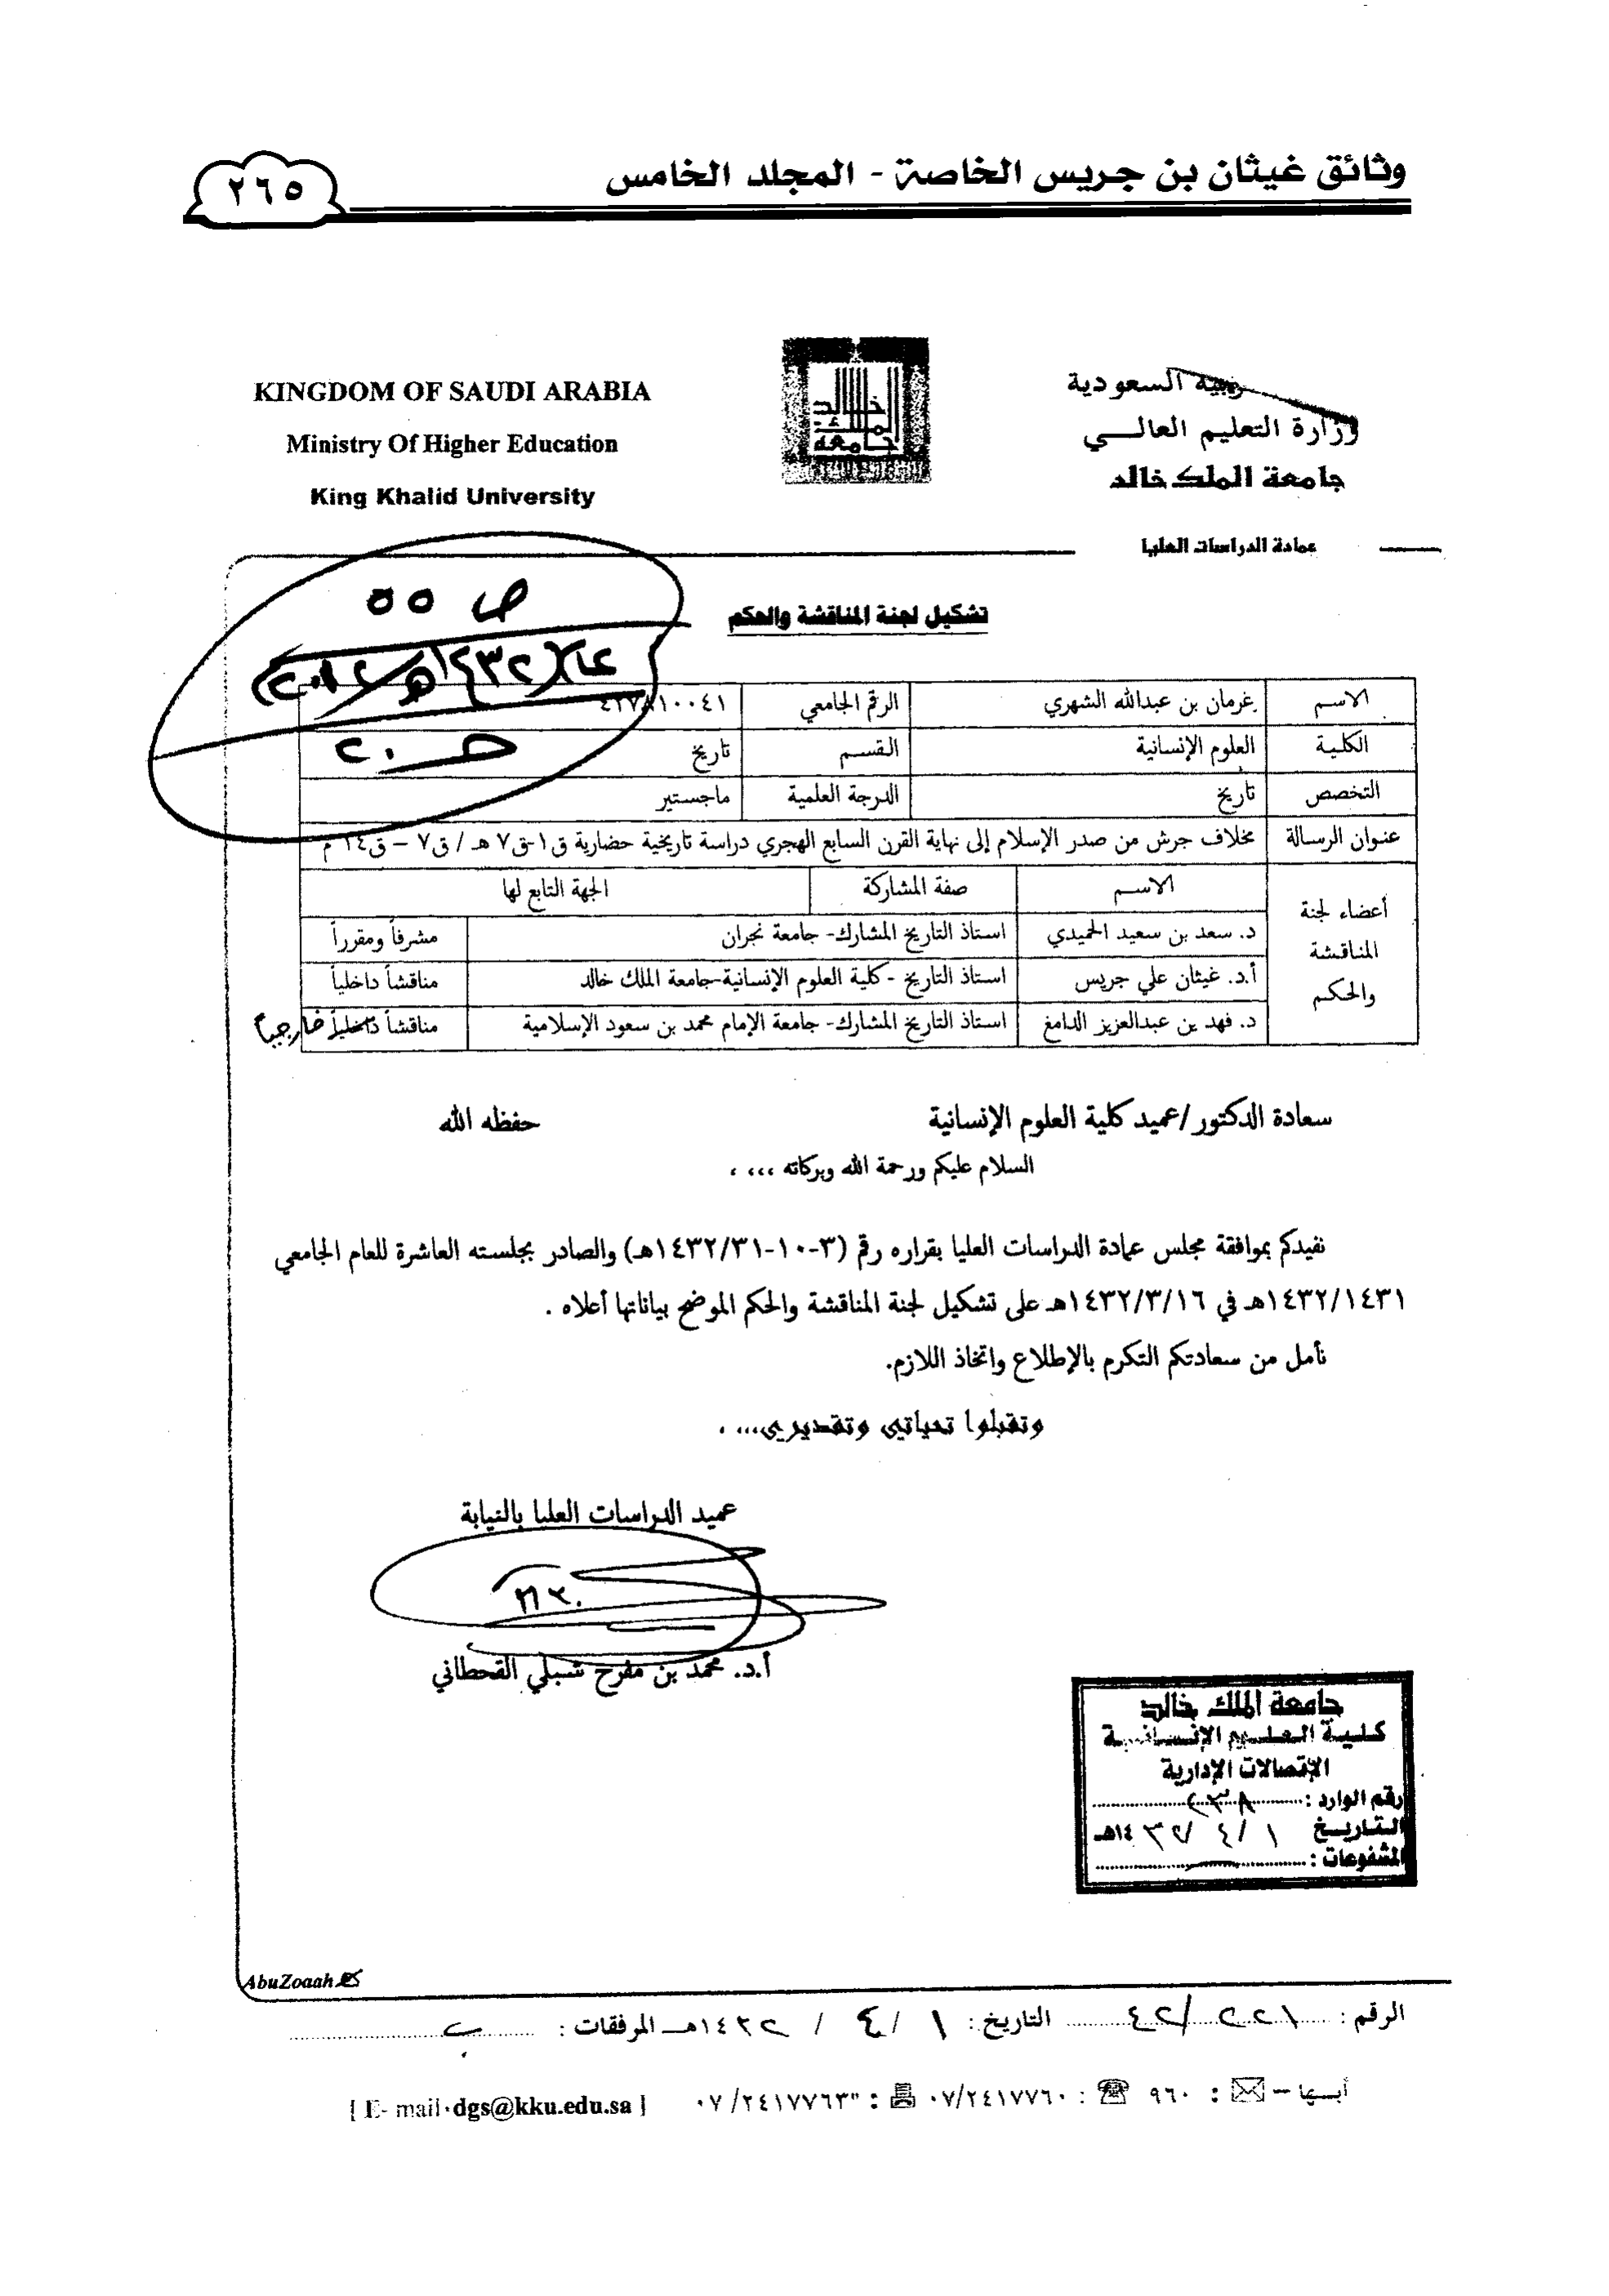 وثائق غيثان بن جريس الخاصة - المجلد الخامس
٢٦٥
KINGDOM OF SAUDI ARABIA
Ministry Of Higher Education
King Khalid University
السعودية
وزارة التعليم العالـــي
جامعة الملك خالد
عمادة الدراسات العليا
ص ٥٥
تشكيل لجنة المناقشة والحكم
الاسم غرمان بن عبدالله الشهري الرقم الجامعي
الكلية العلوم الإنسانية القسم تاريخ
التخصص تاريخ الدرجة العلمية ماجستير
عنوان الرسالة مخلاف جرش من صدر الإسلام إلى نهاية القرن السابع الهجري دراسة تاريخية حضارية ق١-ق٧ هـ / ق٧ – ق١٤ م
أعضاء لجنة المناقشة والحكم
الاسم صفة المشاركة الجهة التابع لها
د. سعد بن سعيد الحميدي استاذ التاريخ المشارك- جامعة نجران مشرفاً ومقرراً
أ.د. غيثان علي جريس استاذ التاريخ -كلية العلوم الإنسانية-جامعة الملك خالد مناقشاً داخلياً
د. فهد بن عبدالعزيز الدامغ استاذ التاريخ المشارك- جامعة الإمام محمد بن سعود الإسلامية مناقشاً داخلياً خارجياً
سعادة الدكتور /عميد كلية العلوم الإنسانية حفظه الله
السلام عليكم ورحمة الله وبركاته ،،، ،
نفيدكم بموافقة مجلس عمادة الدراسات العليا بقراره رقم (٣-١٠-١٤٣٢/٣١هـ) والصادر بجلسته العاشرة للعام الجامعي
١٤٣٢/١٤٣١هـ في ١٤٣٢/٣/١٦هـ على تشكيل لجنة المناقشة والحكم الموضح بياناتها أعلاه .
نأمل من سعادتكم التكرم بالإطلاع واتخاذ اللازم.
وتقبلوا تحياتي وتقديري،،، ،
عميد الدراسات العليا بالنيابة
أ.د. محمد بن مفرح شبلي القحطاني
جامعة الملك خالد
كلية العلوم الإنسانية
الإتصالات الإدارية
رقم الوارد : ٢٣٨
التاريخ ١ / ٤ / ١٤٣٢هـ
المشفوعات :
AbuZoaah
الرقم : ٤٢/٢٢١ التاريخ : ١ / ٤ / ١٤٣٢هـ المرفقات :
أبـها – : ٩٦٠ : ٠٧/٢٤١٧٧٦٠ : ٠٧/٢٤١٧٧٦٣ [ E- mail·dgs@kku.edu.sa ]